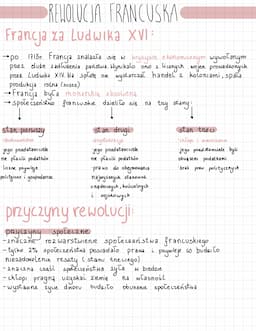 REWOLUCJA FRANCUSKA
Francja za Ludwika XVI:
→ po 1715r. Francja znalazła się w kryzysie ekonomicznym wywołanym
przez duże zadłużenia państwa. Wynikało ono z licznych wojen prowadzonych
przez Ludwika XIV. Na spłatę nie wystarczał handel z koloniami, spadła
produkcja rolna
→ Francja była monarchią absolutną
→ społeczeństwo francuskie dzieliło się na trzy stany:
stan pierwszy stan drugi stan trzeci
duchowieństwo
jego przedstawiciele jego przedstawiciele jego przedstawiciele byli
nie płacili podatków nie płacili podatków obciążeni podatkami
liczne przywileje prawo do obejmowania brak praw politycznych
polityczne i gospodarcze najwyższych stanowisk
urzędowych, kościelnych
i wojskowych
przyczyny rewolucji:
przyczyny społeczne
- znaczne rozwarstwienie społeczeństwa francuskiego
- tylko 2% społeczeństwa posiadało prawa i przywileje co budziło
niezadowolenie reszty (stanu trzeciego)
- znaczna część społeczeństwa żyła w biedzie
- chłopi pragną uzyskać ziemię na własność
- wystawne życie dworu budziło oburzenie społeczeństwa